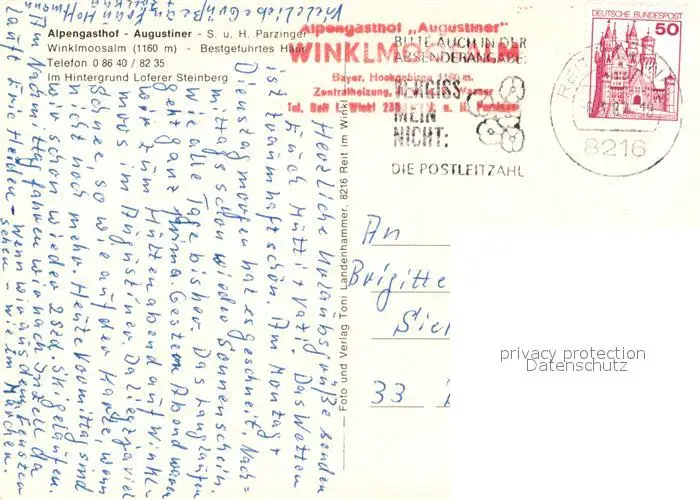 Alpengasthof - Augustiner - S. u. H. Parzinger
Winklmoosalm (1160 m) - Bestgeführtes Haus
Telefon 0 86 40 / 82 35
Im Hintergrund Loferer Steinberg
Alpengasthof „Augustiner"
WINKLMOOSALM
Bayer. Hochgebirge 1160 m.
Zentralheizung, Wasser
Tel. Reit i. Winkl 235 u. H. Parzinger
BITTE AUCH IN DER
ABSENDERANGABE:
VERGISS
MEIN
NICHT:
DIE POSTLEITZAHL
DEUTSCHE BUNDESPOST
50
REIT
8216
Foto und Verlag Toni Landenhammer, 8216 Reit im Winkl
An
Brigitte
33
Herzliche Urlaubsgrüße senden
Euch Mutti + Vati. Das Wetter
ist traumhaft schön. Am Montag +
Dienstag morgen hat es geschneit. Nach=
mittags schon wieder Sonnenschein
wie alle Tage bisher. Das Langlaufen
geht ganz prima. Gestern Abend waren
wir zum Hüttenabend auf Winkl=
moos im Augustiner. Da liegt zuviel
Schnee, so wie auf der Karte, wenn
nicht noch mehr. Heute Vormittag sind
wir schon wieder 2 Std. Ski gelaufen.
Am Nachmittag fahren wir nach Inzell da
läuft Erie Heiden - Wenn wir aus dem Fenster
sehen - wie im Märchen.
Herzliche Grüße
privacy protection
Datenschutz